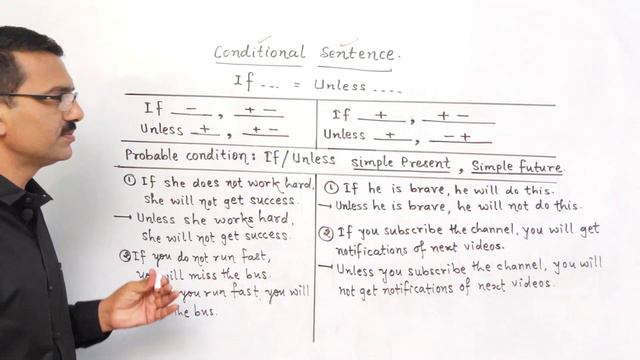 Conditional Sentence.
If ... = Unless ....
If - , + -
Unless + , + -
If + , + -
Unless + , - +
Probable condition: If/Unless simple Present, Simple future.
① If she does not work hard,
she will not get success.
→ Unless she works hard,
she will not get success.
② If you do not run fast,
you will miss the bus.
you run fast, you will
the bus.
① If he is brave, he will do this.
→ Unless he is brave, he will not do this.
② If you subscribe the channel, you will get
notifications of next videos.
→ Unless you subscribe the channel, you will
not get notifications of next videos.